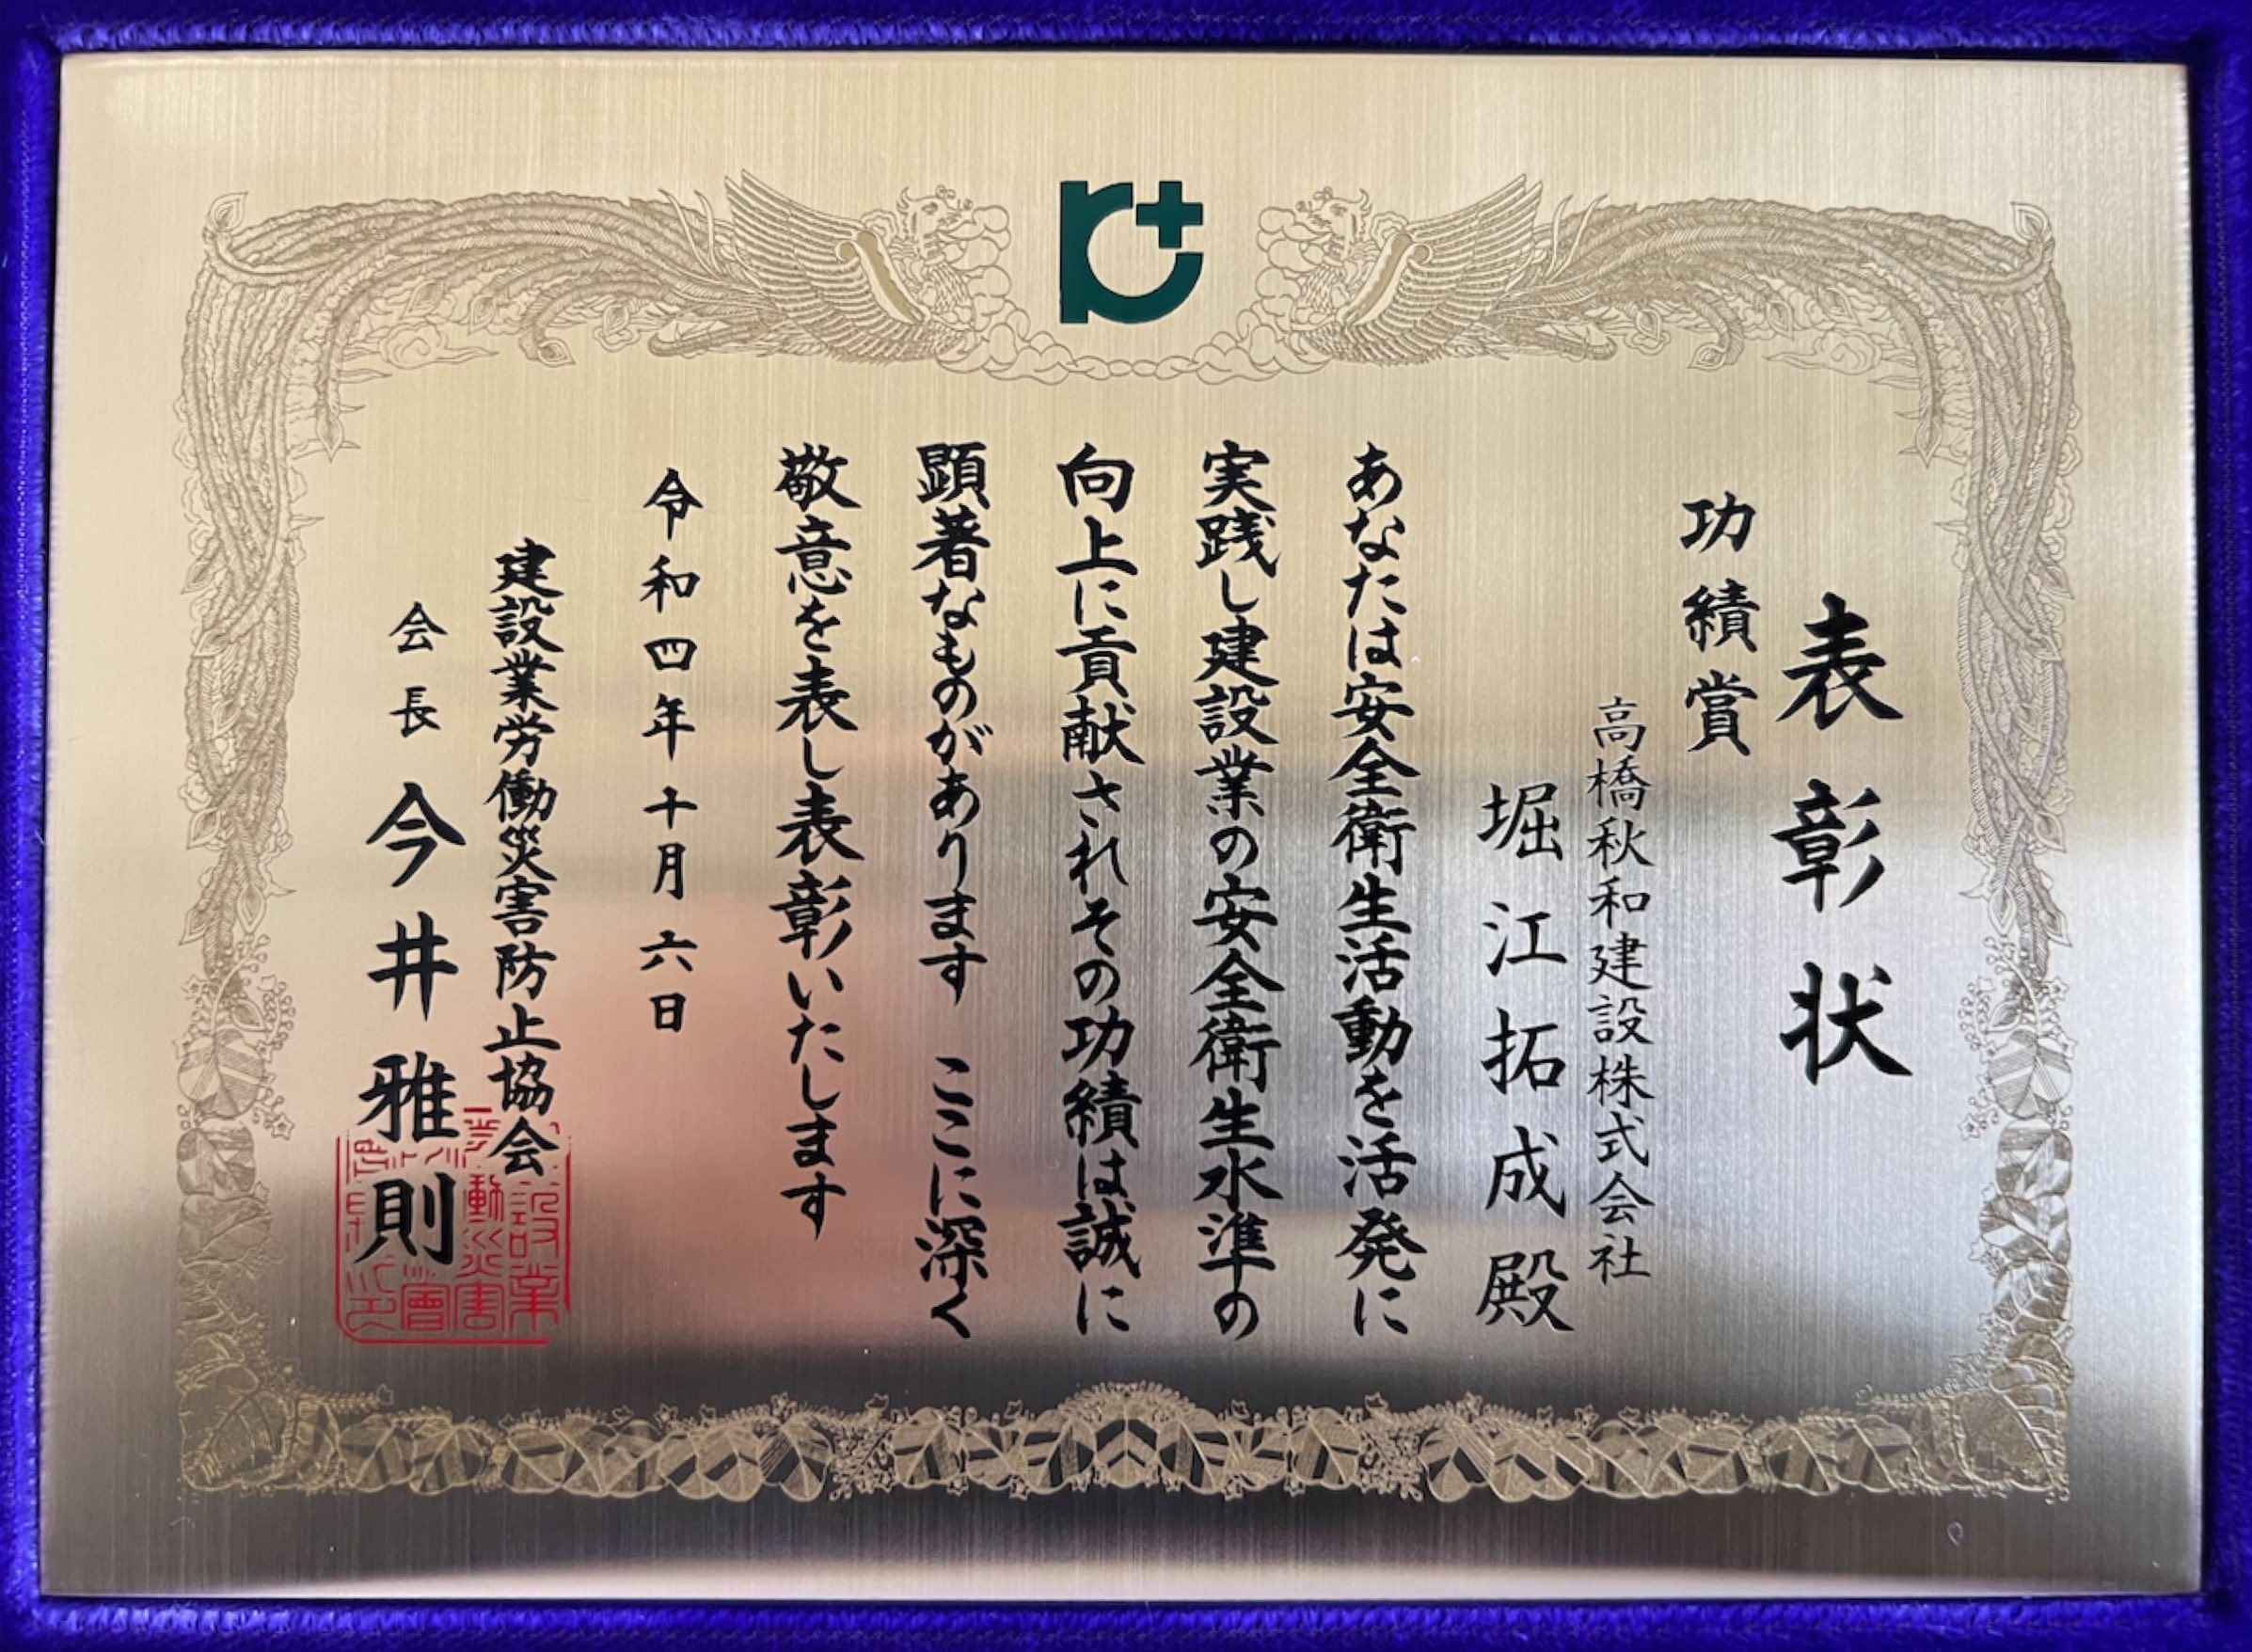 表彰状
功績賞
高橋秋和建設株式会社
堀江拓成殿
あなたは安全衛生活動を活発に
実践し建設業の安全衛生水準の
向上に貢献されその功績は誠に
顕著なものがあります ここに深く
敬意を表し表彰いたします
令和四年十月六日
建設業労働災害防止協会
会長 今井雅則